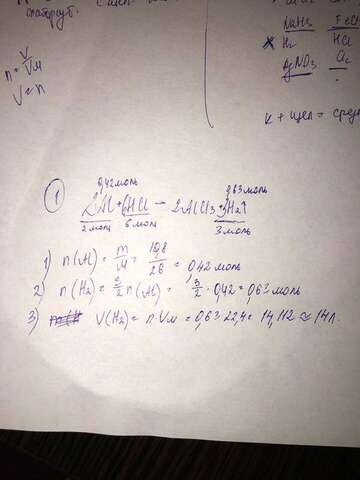 n = V/Vм
V = n
NaH3
FeCl
H2
HCl
AgNO3
к + щел = сред
①
0,42 моль
0,63 моль
2Al + 6HCl → 2AlCl3 + 3H2↑
2 моль 6 моль 3 моль
1) n(Al) = m/M = 10,8/26 = 0,42 моль
2) n(H2) = 3/2 n(Al) = 3/2 · 0,42 = 0,63 моль
3) V(H2) = n Vм = 0,63·22,4 = 14,112 ≈ 14 л.